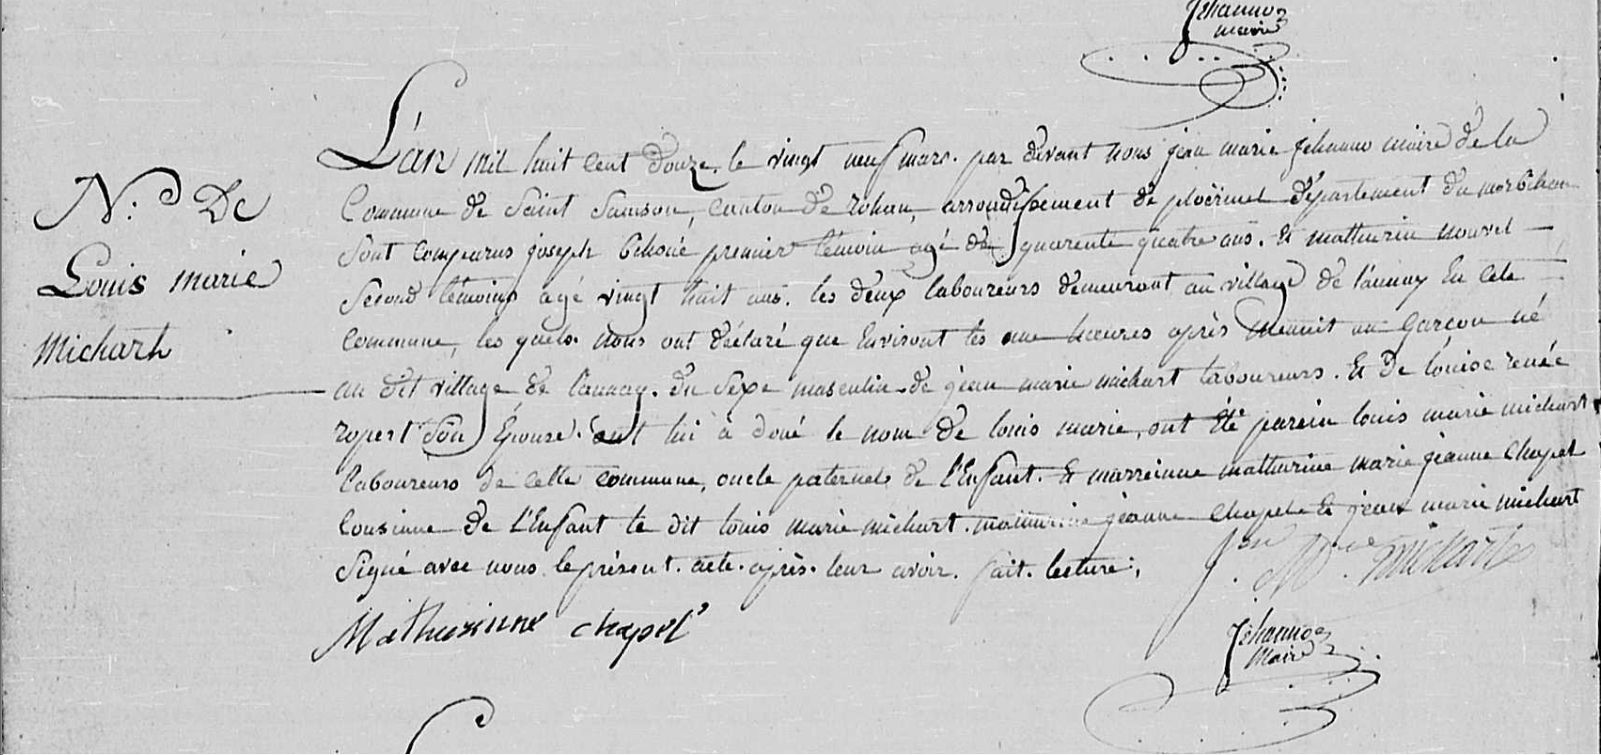 Jehanno
maire
L'an mil huit cent douze. le vingt neuf mars. par devant nous jean marie jehanno maire de la
Commune de Saint Samson, canton de rohan, arrondissement de ploërmel département du morbihan
sont comparus joseph premier témoin agé de quarente quatre ans. Et mathurin nouvel
Second témoins agé vingt huit ans. les deux laboureurs demeurant au village de launay En cete
commune, les quels. nous ont déclaré que Environt les une heures après menuit un Garcon né
au dit village de launay. du sexe masculin. de jean marie michart laboureurs. Et De louise renée
ropert son Epouse. ont lui à doné le nom de louis marie, ont été parein louis marie michart
laboureurs de cette commune, oncle paternel de l'Enfant. Et marreinne mathurine marie jeanne Chapel
Cousinne de l'Enfant le dit louis marie michart. mathurine jeanne Chapel & jean marie michart
Signé avec nous le présent. acte. après. leur avoir. fait. lecture.
N.º De
Louis marie
Micharh
J.en M.ie michart
Mathurinne chapel
Jehanno
Maire